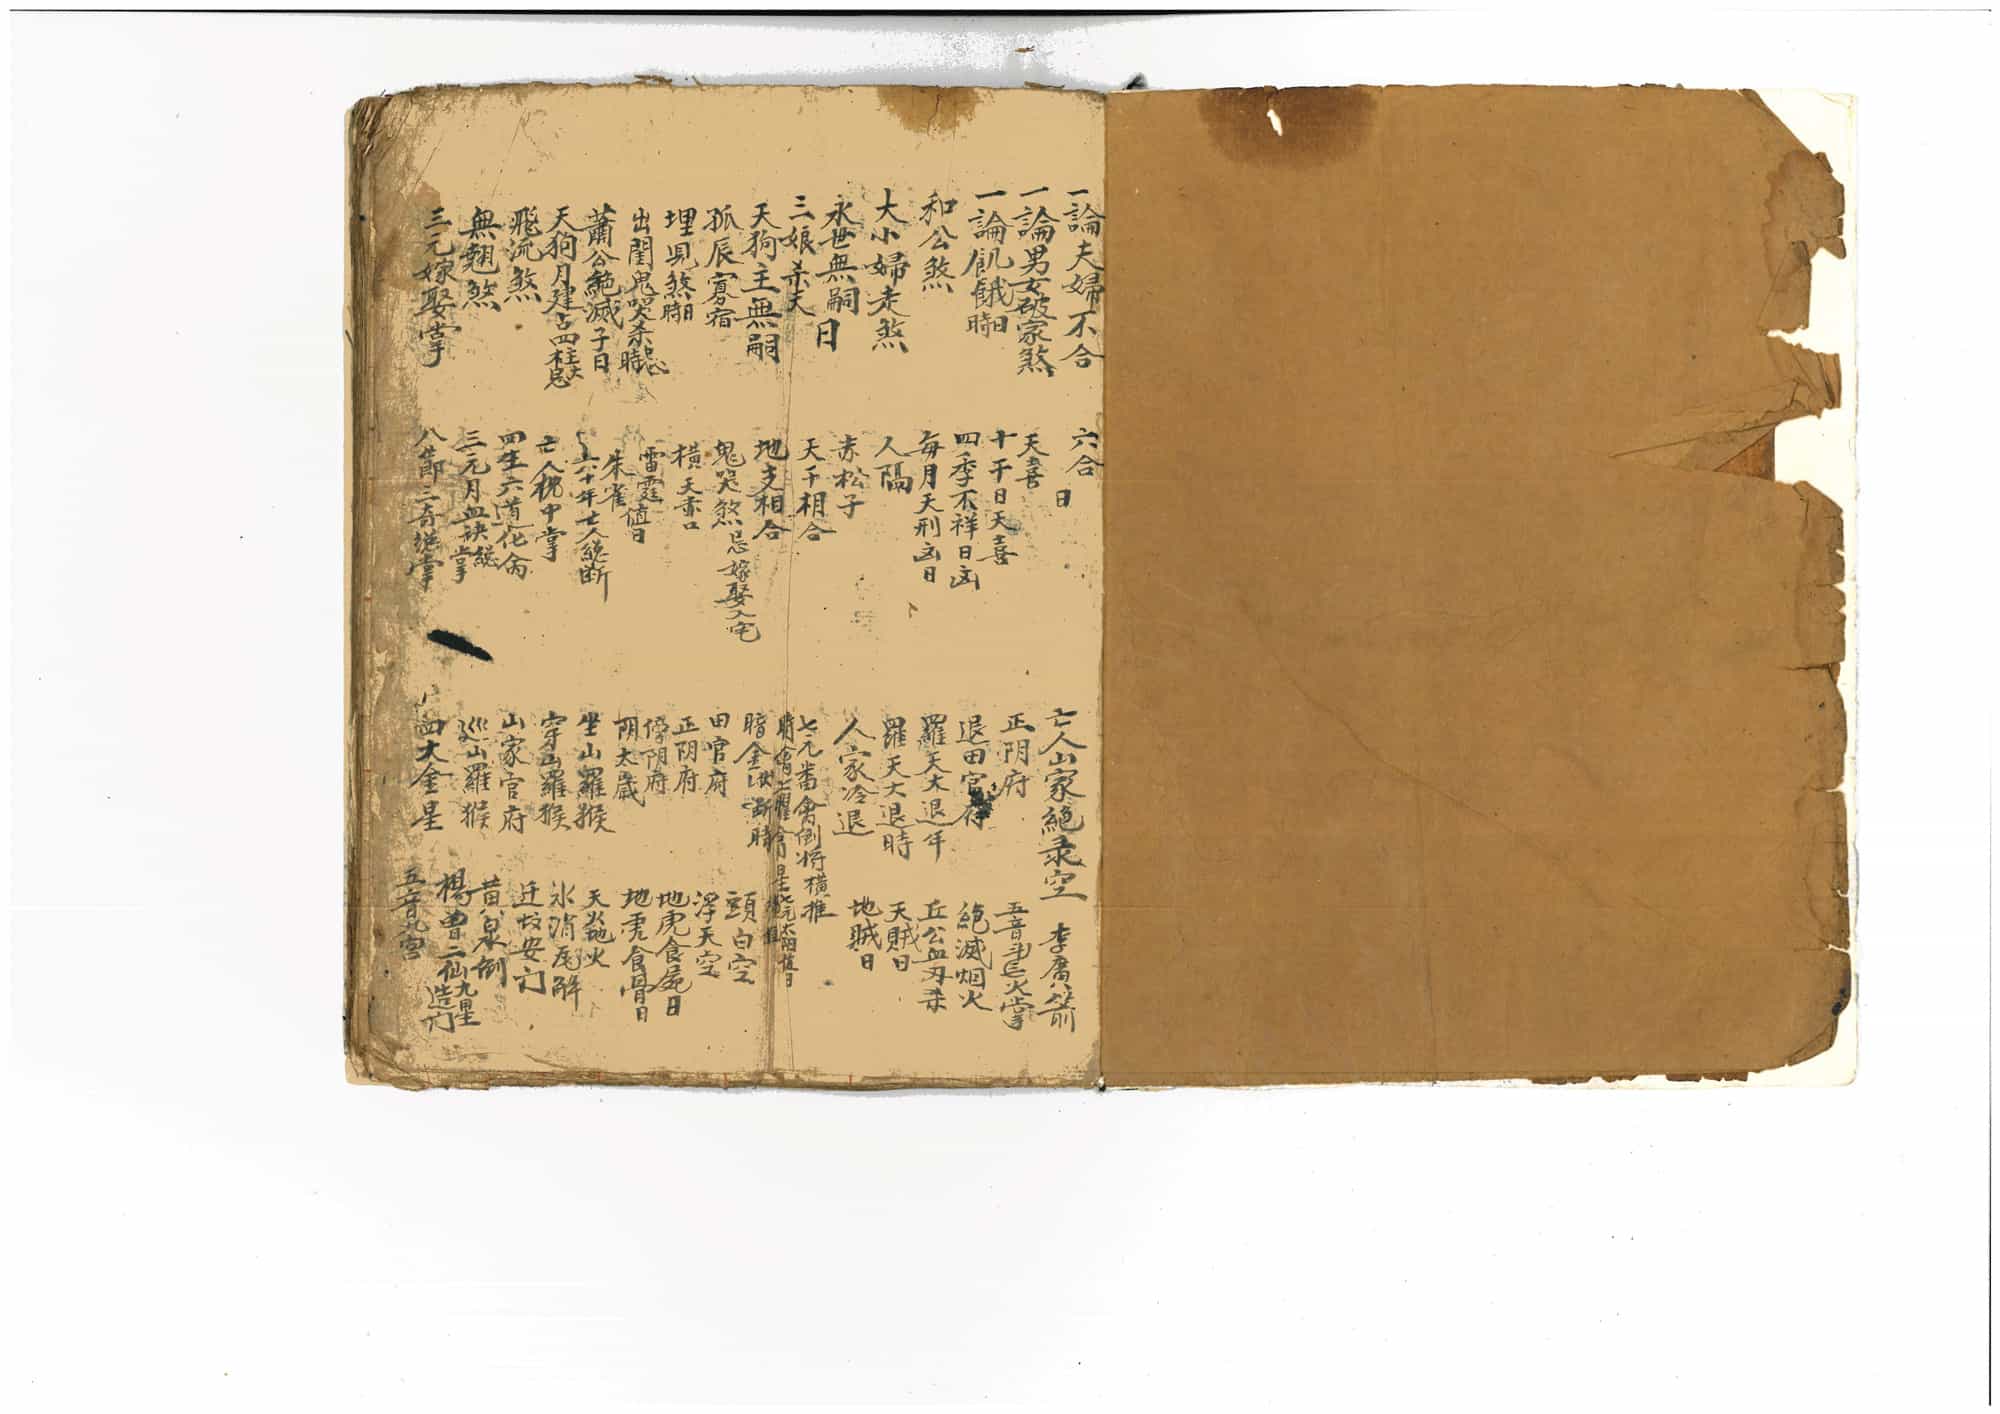 一論夫婦不合
一論男女破家煞
一論飢餓日時
和公煞
大小婦走煞
永世無嗣日
三娘杀夫
天狗主無嗣
孤辰寡宿
埋児煞日時
出閨鬼哭杀忌時
蕭公絕滅子日
天狗月建占四柱大忌
飛流煞
無翹煞
三元嫁娶掌
六合日
天喜
十干日天喜
四季不祥日凶
每月天刑凶日
人隔
赤松子
天干相合
地支相合
鬼哭煞忌嫁娶入宅
橫天赤口
雷霆值日
朱雀
六十年亡人總断
亡人税中掌
四生六道化俞
三元月血訣総掌
八節三奇総掌
亡人山家絕录空
正阴府
退田官府
羅天大退年
羅天大退時
人家冷退
七元番禽倒将橫推
暗金伏断時
田官府
正阴府
傍阴府
阴太歲
坐山羅猴
穿山羅猴
山家官府
巡山羅猴
四大金星
李廣箭
五音斗□火掌
絕滅烟火
丘公血刃杀
天賊日
地賊日
頭白空
浮天空
地虎食屍日
地虎食骨日
天火地火
氷消瓦解
迁坟安门
黄泉倒
楊曾二仙九星造门
五音九宮